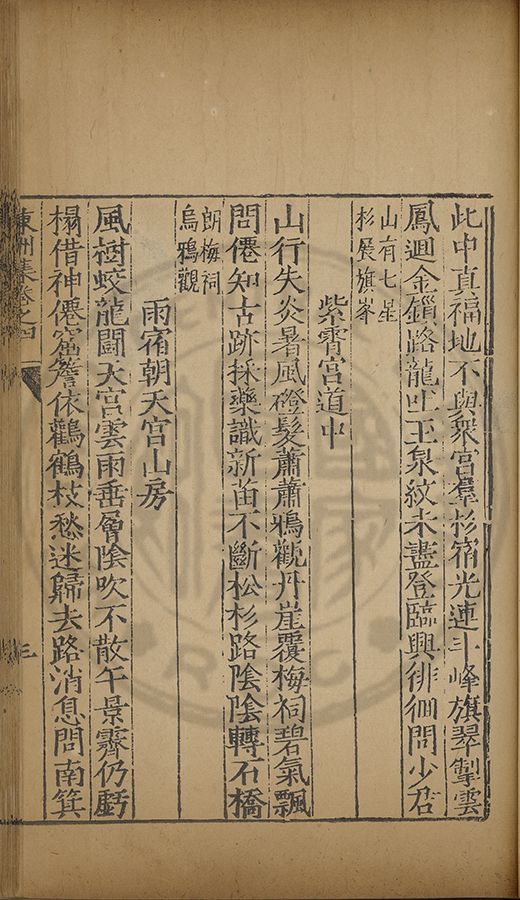 此中真福地不與眾宮羣杉宿光連斗峰旗翠掣雲
鳳迴金鎖路龍吐玉泉紋未盡登臨興徘徊問少君
山有七星
杉展旗峯
紫霄宮道中
山行失炎暑風磴髮蕭蕭鴉觀丹崖覆梅祠碧氣飄
問僊知古跡採藥識新苗不斷松杉路陰陰轉石橋
朗梅祠
烏鴉觀
雨宿朝天宮山房
風樹蛟龍鬪天宮雲雨垂層陰吹不散午景霽仍虧
榻借神僊窟簷依鸛鶴枝愁迷歸去路消息問南箕
東州集卷之四
三